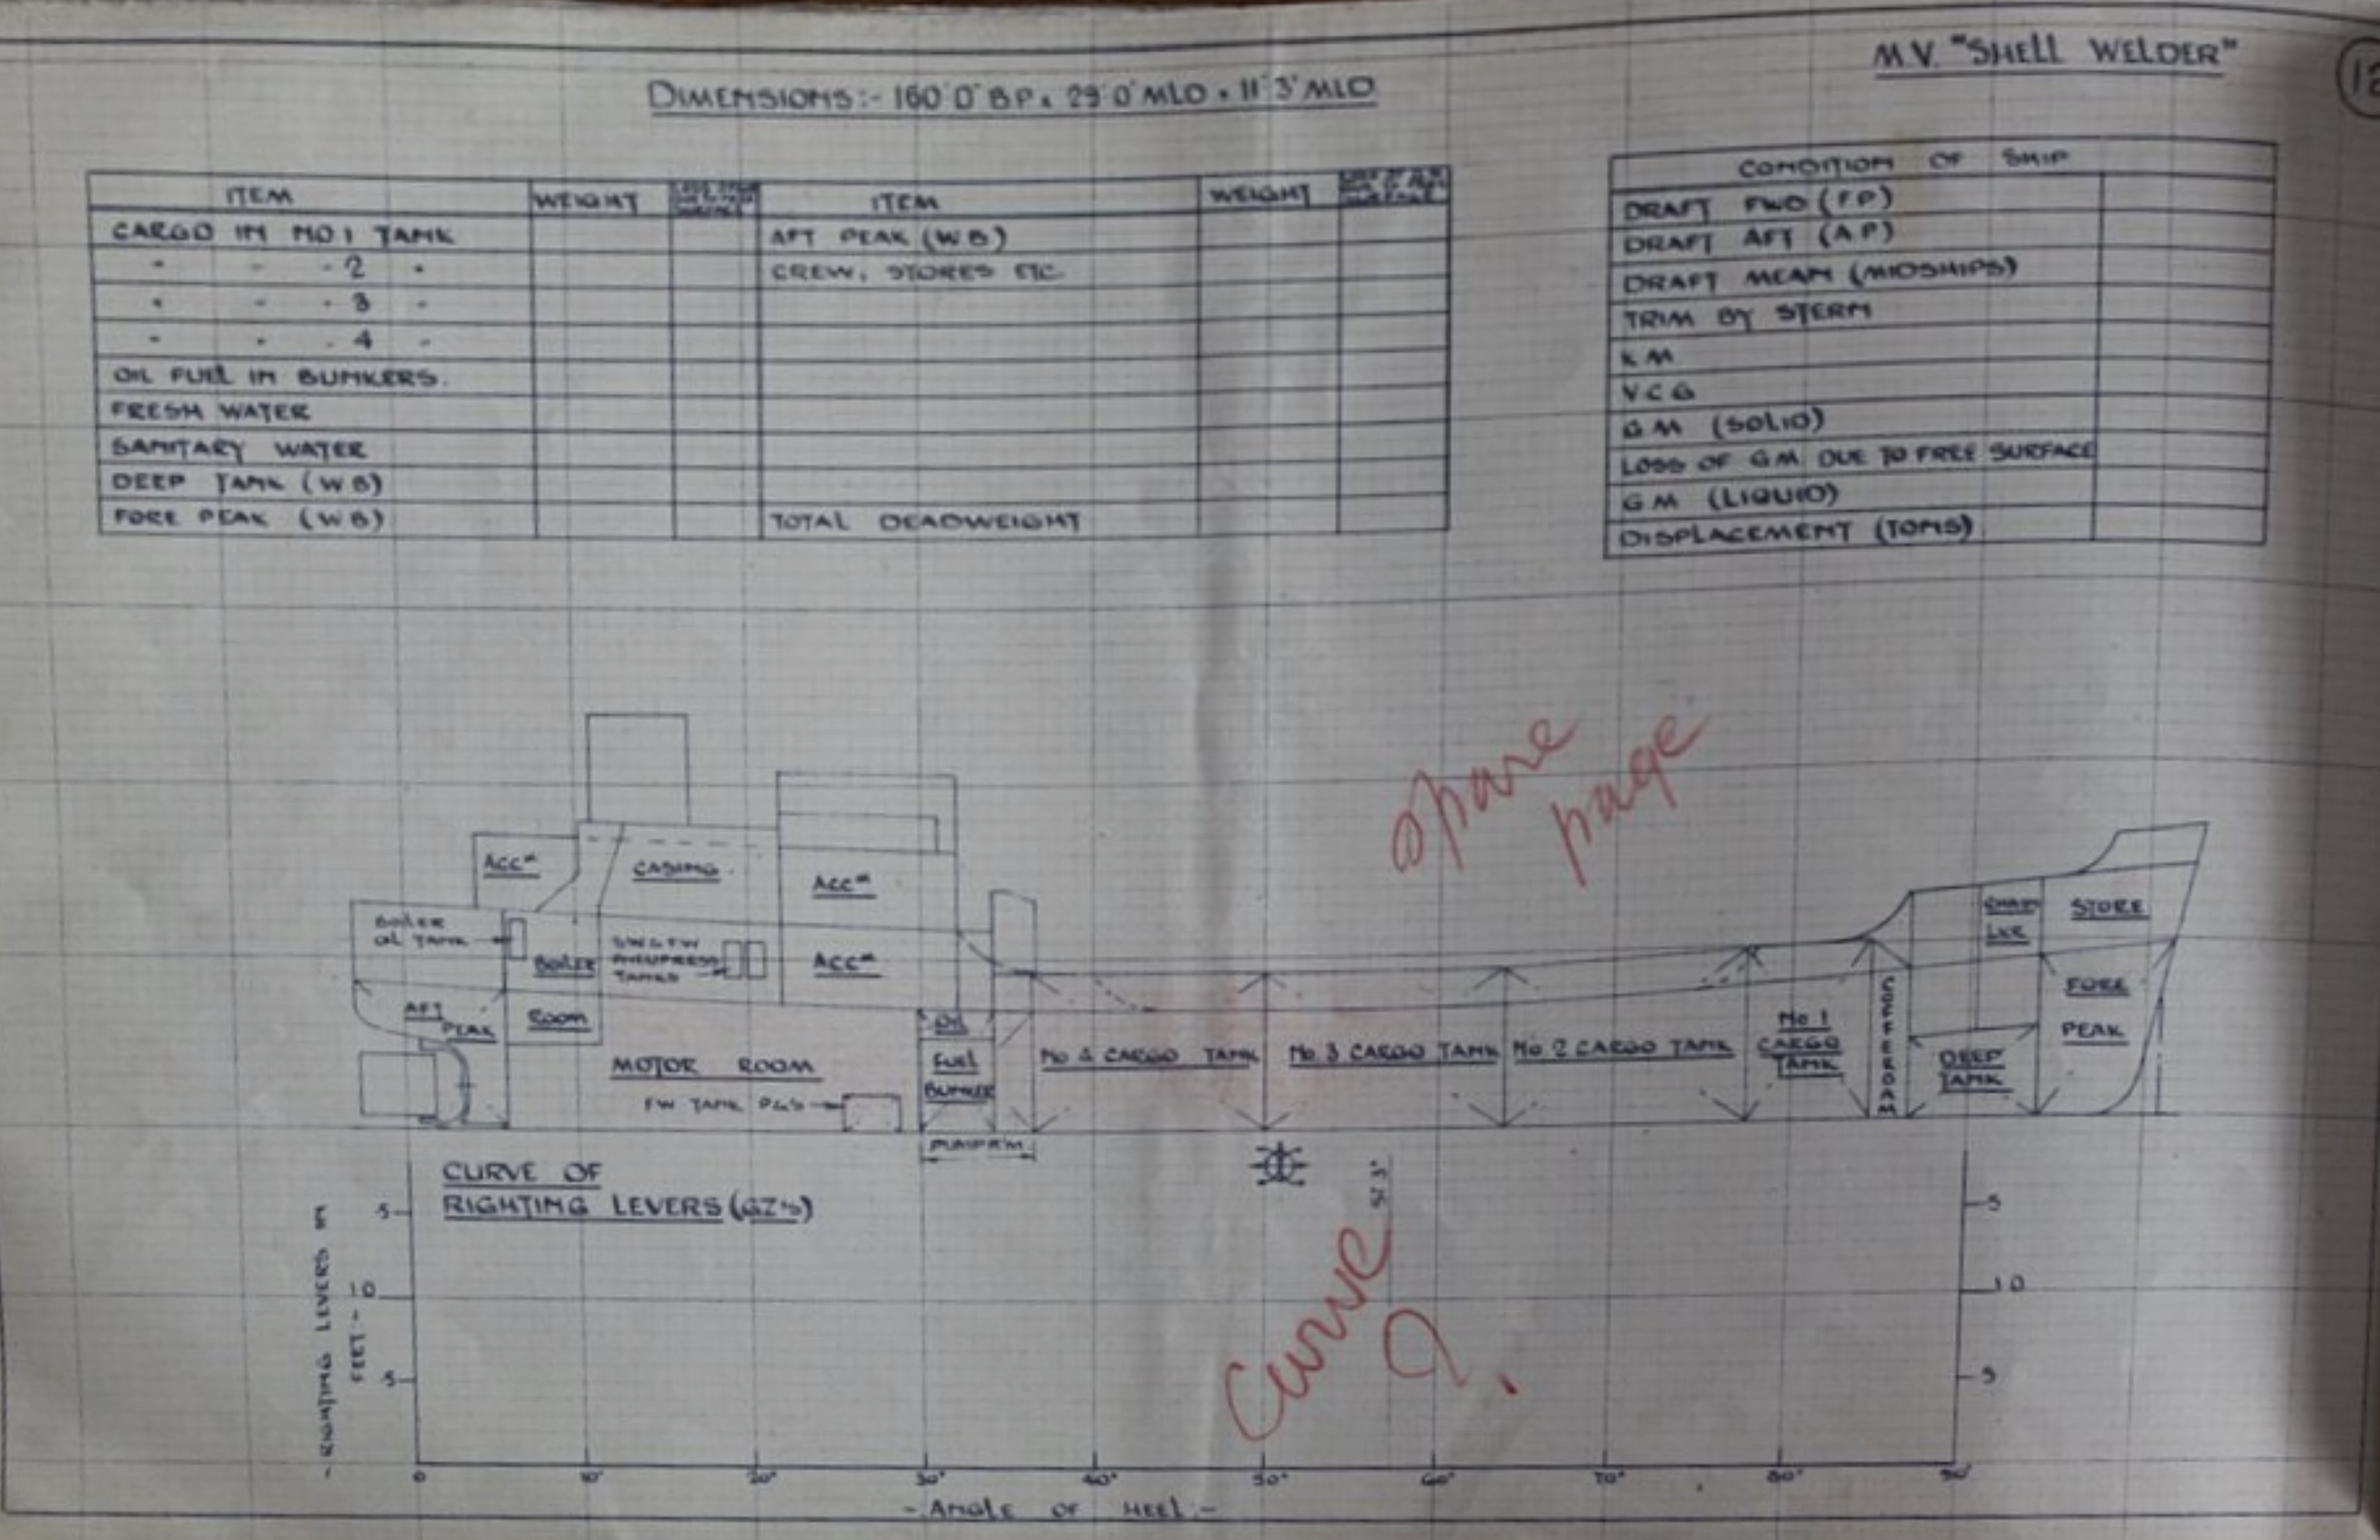 M.V. "SHELL WELDER"
12
DIMENSIONS:- 160'0" BP. 29'0" MLD. 11'3" MLD
ITEM WEIGHT
CARGO IN NO 1 TANK
" " " 2 "
" " " 3 "
" " " 4 "
OIL FUEL IN BUNKERS.
FRESH WATER
SANITARY WATER
DEEP TANK (WB)
FORE PEAK (WB)
ITEM WEIGHT
AFT PEAK (WB)
CREW, STORES ETC
TOTAL DEADWEIGHT
CONDITION OF SHIP
DRAFT FWD (FP)
DRAFT AFT (AP)
DRAFT MEAN (MIDSHIPS)
TRIM BY STERN
KM
VCG
GM (SOLID)
LOSS OF GM DUE TO FREE SURFACE
GM (LIQUID)
DISPLACEMENT (TONS)
Spare
page
ACCN
CASING
ACCN
BOILER
OIL TANK
BOILER
ROOM
SW & FW
PNEUPRESS
TANKS
ACCN
AFT
PEAK
MOTOR ROOM
FW TANK P&S
OIL
FUEL
BUNKER
PUMP RM
No 4 CARGO TANK
No 3 CARGO TANK
No 2 CARGO TANK
No 1
CARGO
TANK
COFFERDAM
CHAIN
LKR
STORE
DEEP
TANK
FORE
PEAK
CURVE OF
RIGHTING LEVERS (GZ's)
- RIGHTING LEVERS IN
FEET:-
5
10
5
5
10
5
Curve
?
0 10° 20° 30° 40° 50° 60° 70° 80° 90°
- ANGLE OF HEEL:-